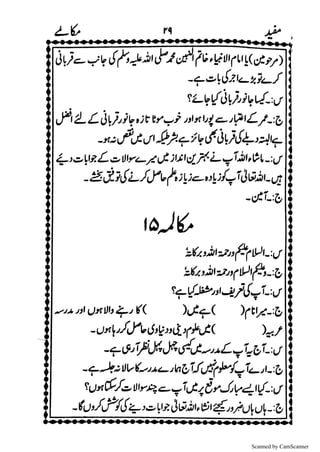 مفید ۲۹ مکالمے
(مرحومین) یا امام الانبیاء خاتم النبیین محمد صلی اللہ علیہ وسلم کی جانب سے قربانی
کرے تو بڑے اجر کی بات ہے۔
س:۔ کیسا جانور قربانی کیا جائے؟
ج:۔ عمر کے اعتبار سے پورا ہو اور خوب موٹا تازہ جانور قربانی کے لئے افضل
ہے البتہ دبلے کی قربانی بھی جائز ہے بشرطیکہ اس میں نقص نہ ہو۔
س:۔ ماشاء اللہ آپ نے بہترین انداز میں میرے سوالات کے جوابات دیئے
ہیں۔ اللہ تعالیٰ آپ کو زیادہ سے زیادہ علم حاصل کرنے کی توفیق بخشے۔
ج:۔ آمین۔
مکالمہ ۱۵
س:۔ السلام علیکم ورحمۃ اللہ وبرکاتہ
ج:۔ وعلیکم السلام ورحمۃ اللہ وبرکاتہ
س:۔ آپ کی تعریف اور مشغلہ کیا ہے؟
ج:۔ میرا نام ( ) ہے میں ( ) کا رہنے والا ہوں اور مدرسہ
عربیہ ( ) میں علوم دینی و دنیاوی حاصل کر رہا ہوں۔
س:۔ آج یہ آپ کے مدرسہ میں کیسی چہل پہل نظر آرہی ہے۔
ج:۔ ارے آپ کو معلوم نہیں کہ آج ہمارے مدرسہ کا سالانہ جلسہ ہے۔
س:۔ کیا ایسے مبارک موقع پر میں آپ سے چند سوالات کر سکتا ہوں؟
ج:۔ ہاں ہاں ضرور کیجئے انشاء اللہ تعالیٰ جوابات دینے کی کوشش کروں گا۔
Scanned by CamScanner